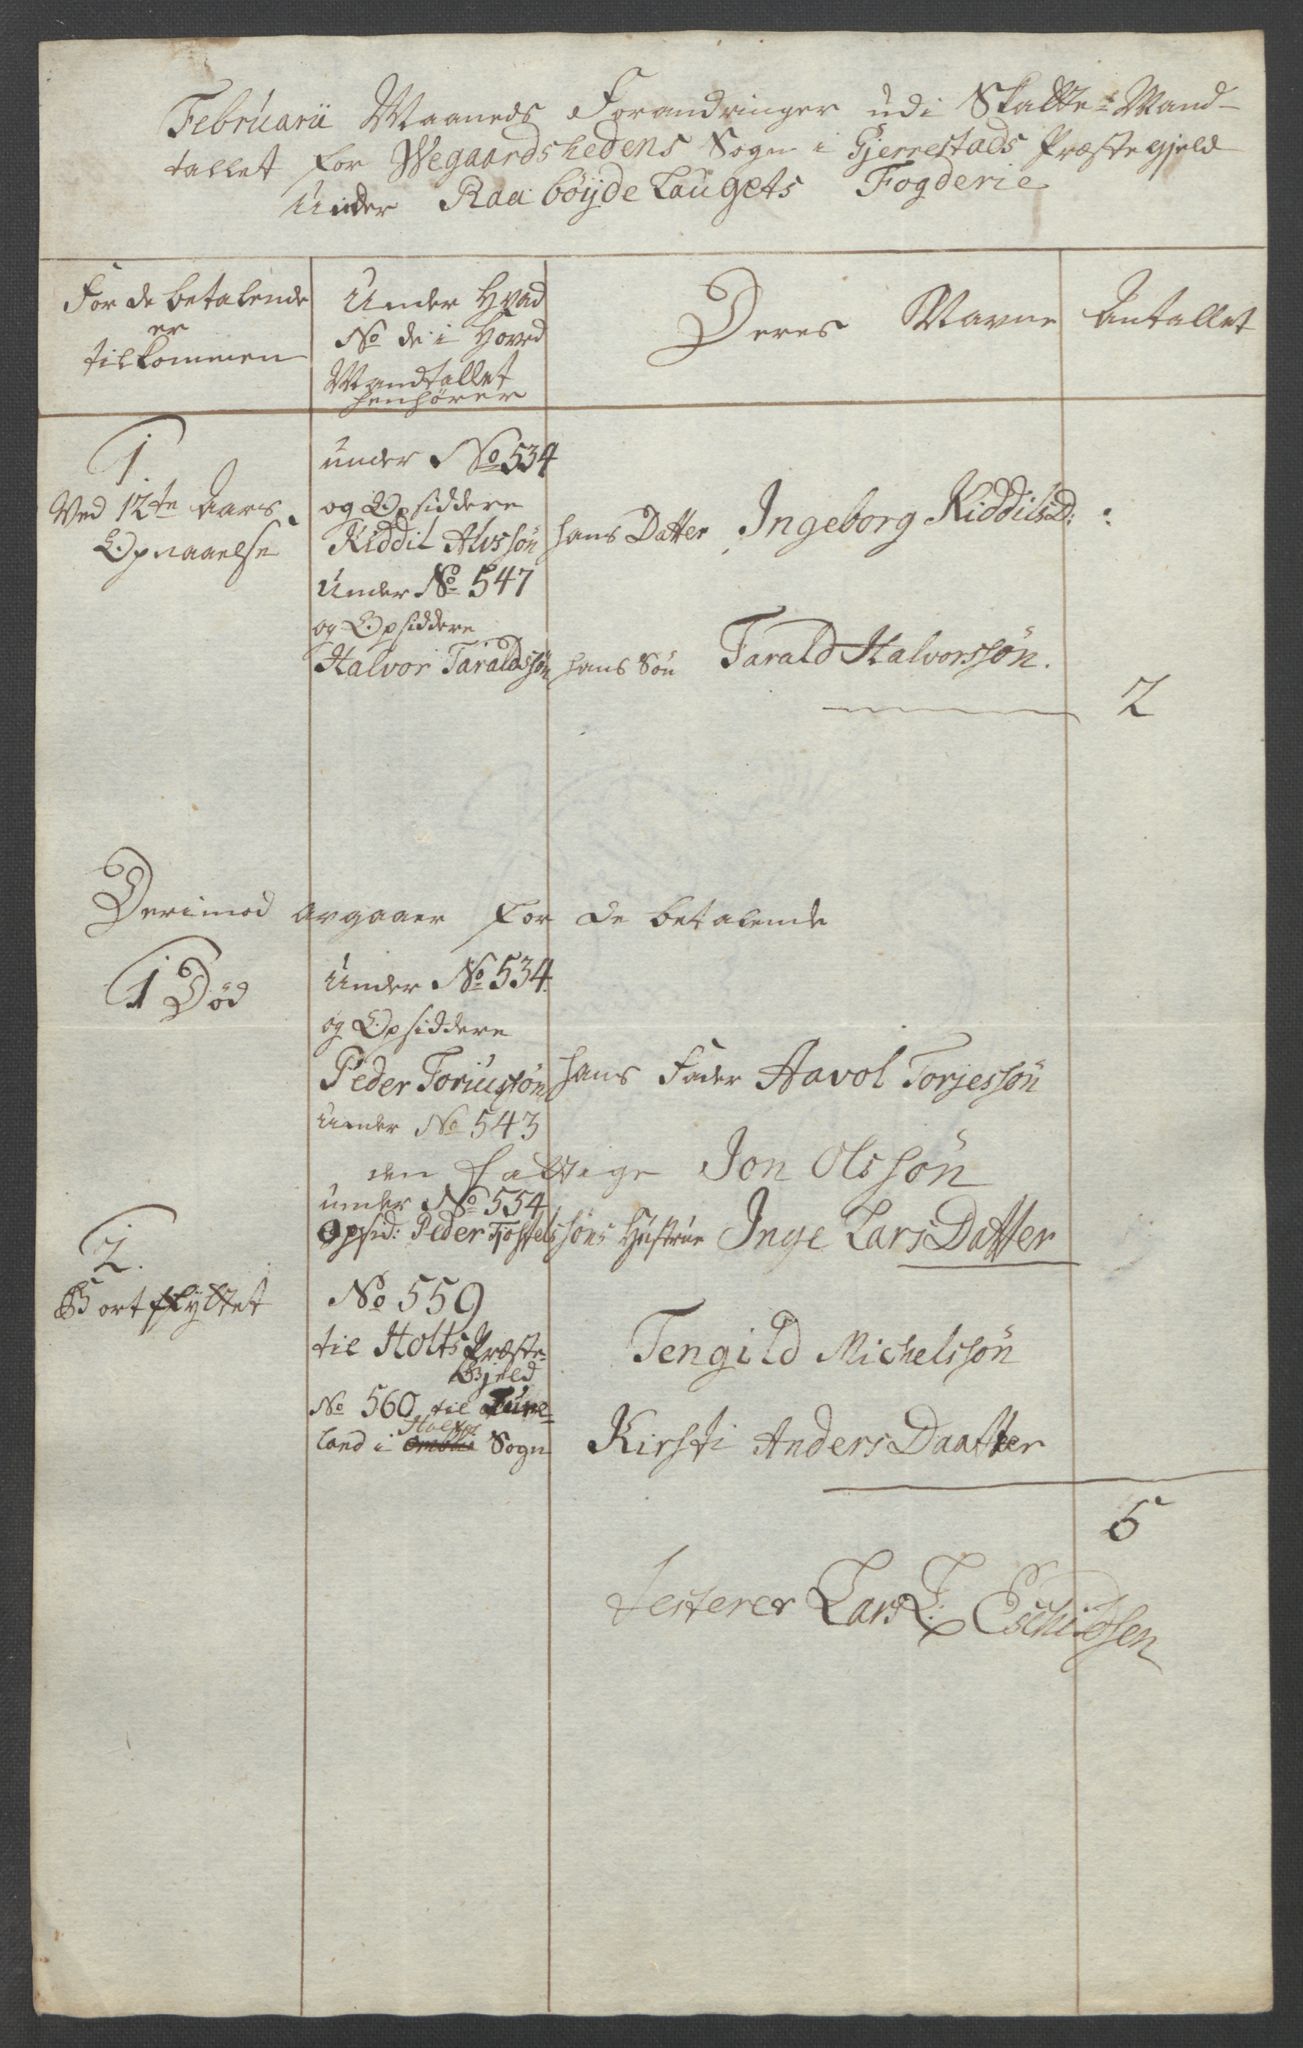 Februarii Maaneds Forandringer udi Skatte-Mand-
tallet for Wegaardshedens Sogn i Gjerrestads Præstegjeld
Under Raabøÿdelaugets Fogderie
For de betalende
er
tilkommen
Under Hvad
No de i Hoved
Mandtallet
henhører
Deres Navne
Antallet
1.
Ved 12te Aars
Opnaaelse
under No 534
og Opsiddere
Kiddil Alvssøn hans Datter Ingeborg KiddilsD:
Under No 547
og Opsiddere
Halvor Taraldssøn hans Søn Tarald Halvorssøn.
2
Derimod avgaaer for de betalende
1 Død
Under No 534.
og Opsiddere
Peder Toriussøn hans Fader Aavol Torjessøn
Under No 543
den fattige Jon Olssøn
under No 554
Opsid: Peder Tjostelssøns Hustrue Inge LarsDatter
2.
Bortflyttet
No 559
til Holts Præste-
Gjeld
Tengild Michelssøn
No 560 til
land i Holts Sogn Kirsti AndersDaatter
5
Testerer Lars T: Eschildsen